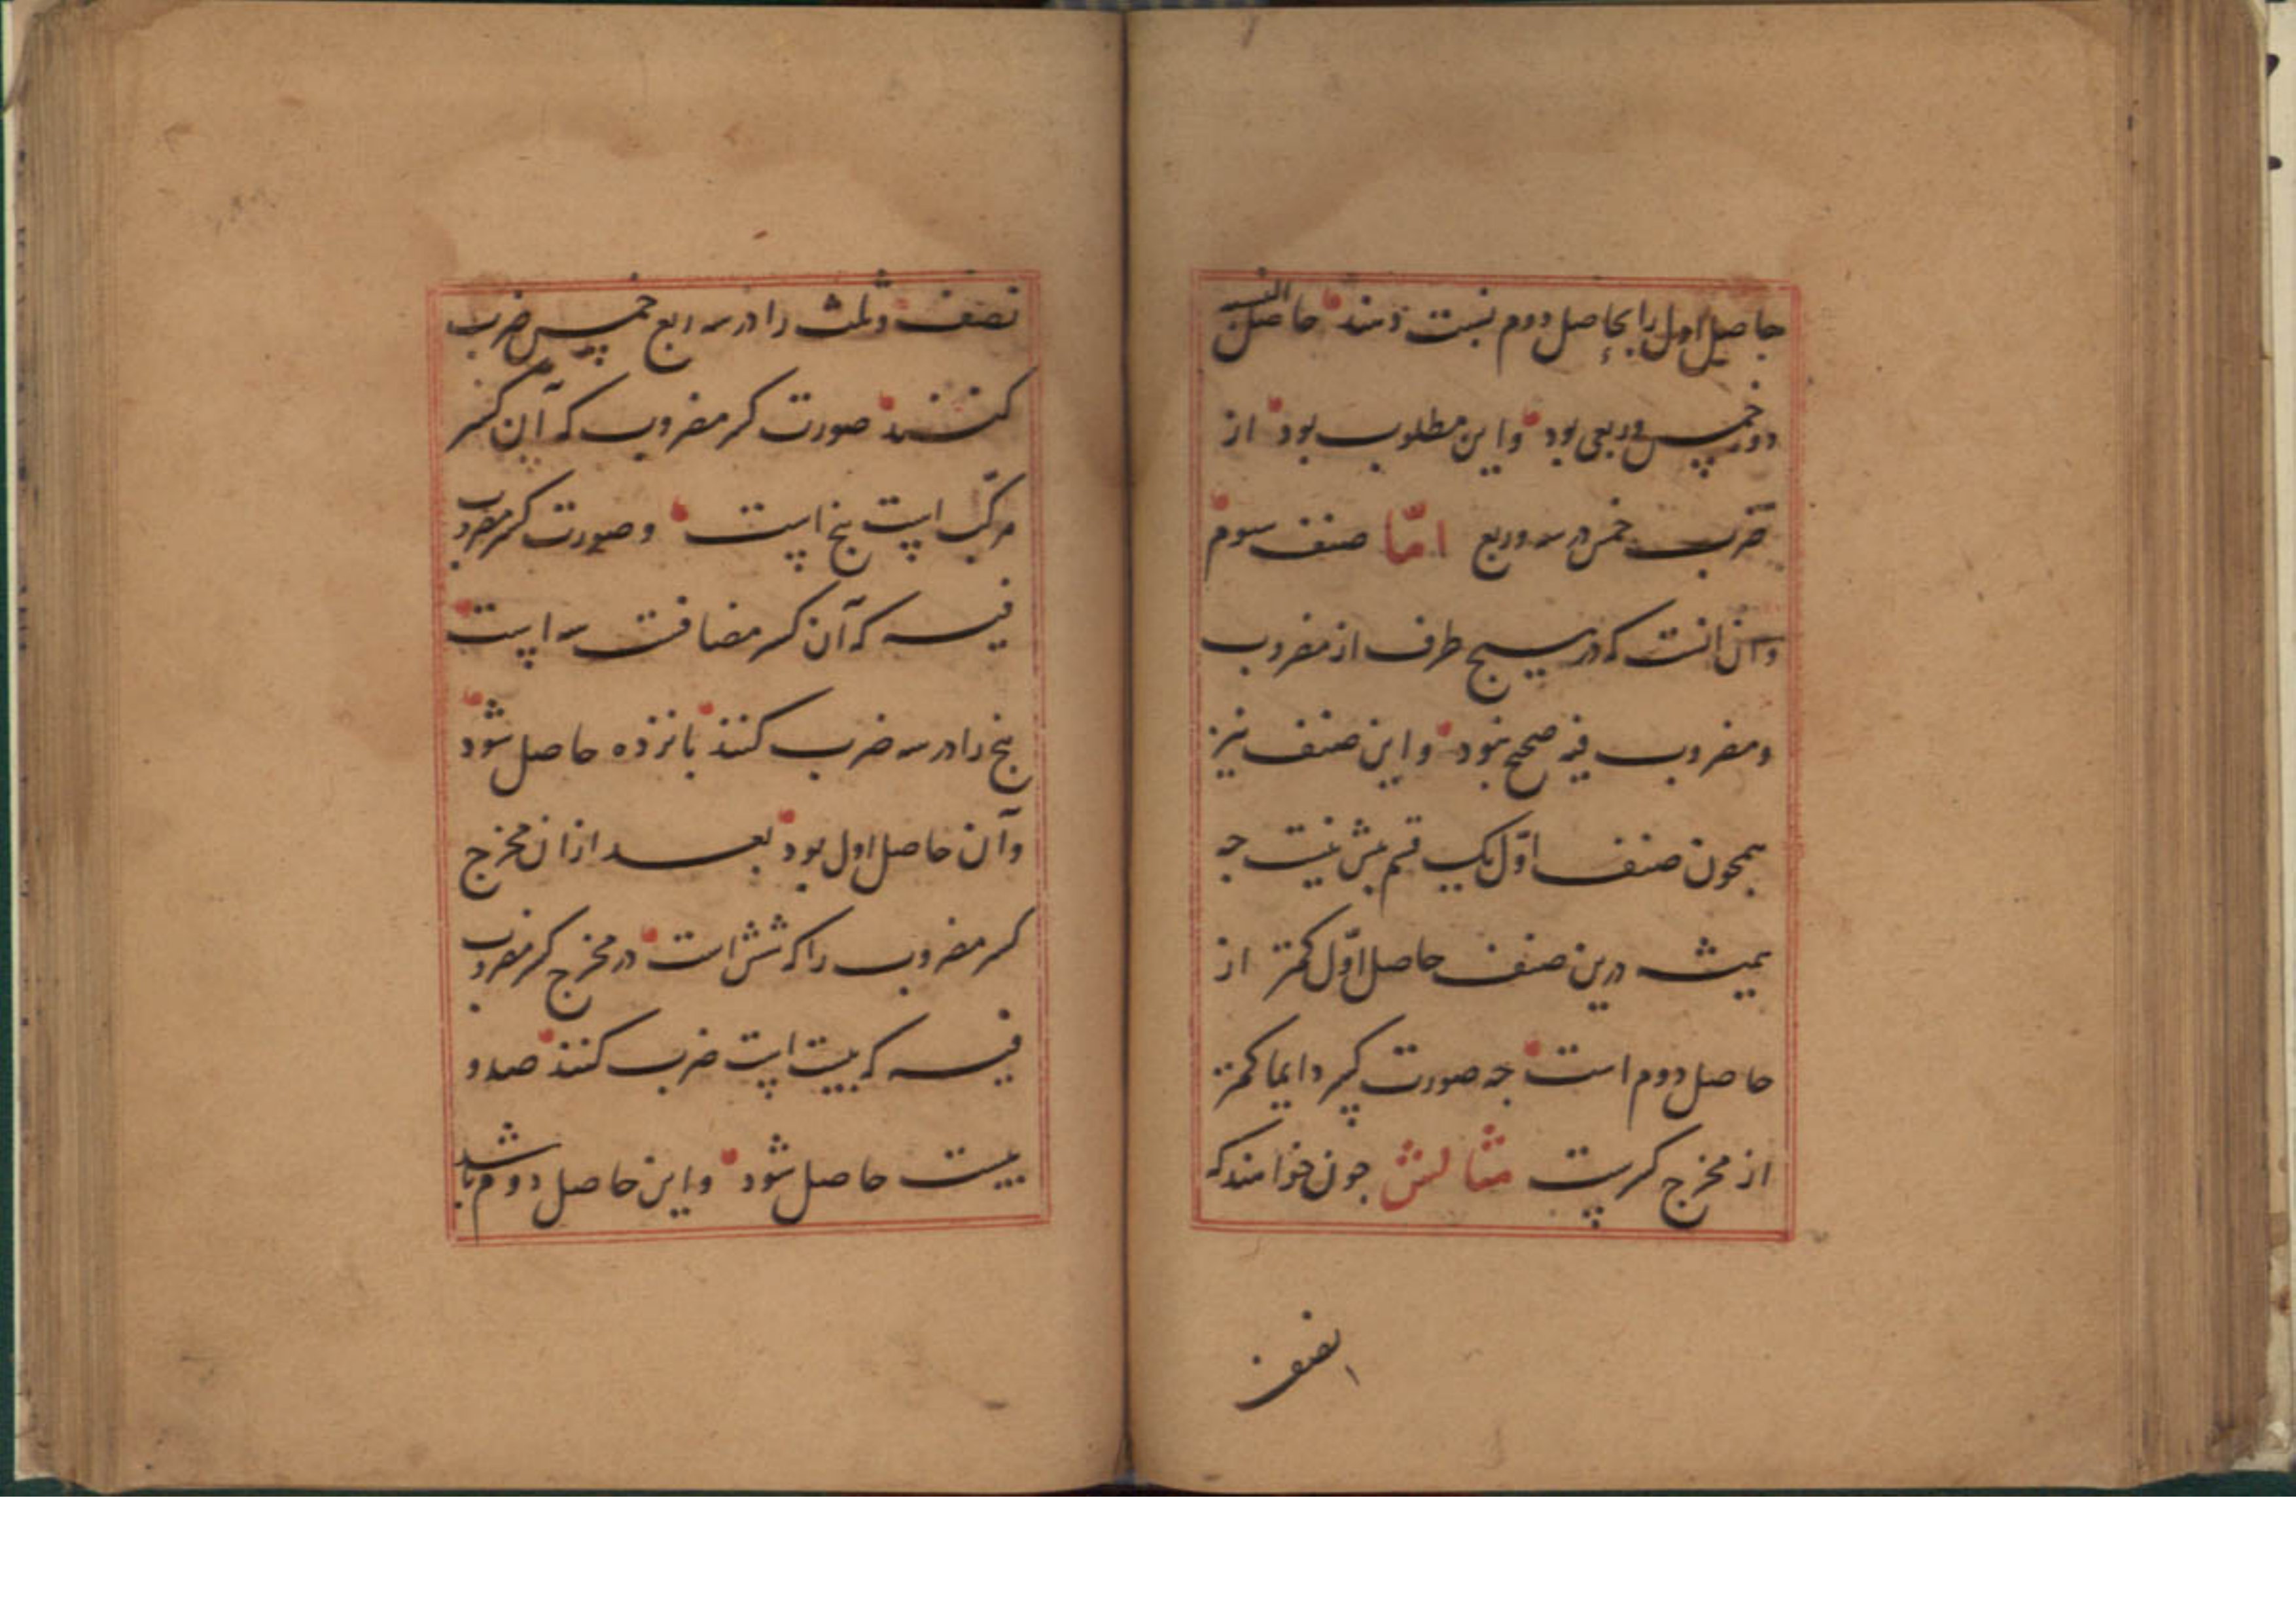 حاصل اول را بحاصل دوم نسبت دهند حاصل النسبه
دو خمس و ربعی بود و این مطلوب بود از
ضرب خمس در سه و ربع امّا صنف سوم
و آن آنست که در هیچ طرف از مضروب
و مضروب فیه صحیح نبود و این صنف نیز
همچون صنف اوّل یک قسم بیش نیست جه
همیشه درین صنف حاصل اوّل کمتر از
حاصل دوم است جه صورت کسر دایما کمتر
از مخرج کسرست مثالش جون خواهند که
نصف
نصف و ثلث را در سه ربع خمس ضرب
کنند صورت کسر مضروب که آن کسر
مرکّب است بنج است و صورت کسر مضروب
فیه که آن کسر مضافست سه است
بنج را در سه ضرب کنند بانزده حاصل شود
و آن حاصل اول بود بعد از ان مخرج
کسر مضروب را که شش است در مخرج کسر مضروب
فیه که بیست است ضرب کنند صد و
بیست حاصل شود و این حاصل دوم باشد